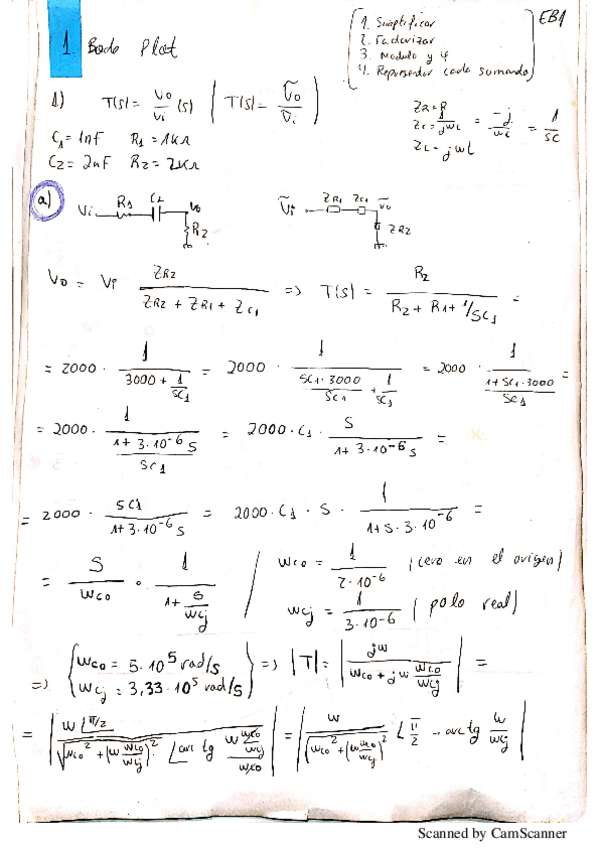 EB1
1. Bode Plot
1. Simplificar
2. Factorizar
3. Modulo y φ
4. Representar cada sumando
1) T(s) = Vo/Vi (s) ( T(s) = Ṽo/Ṽi )
ZR = R
Zc = 1/jwc = -j/wc = 1/sc
ZL = jwL
C1 = 1nF R1 = 1kΩ
C2 = 2nF R2 = 2kΩ
a) Vi R1 C1 Vo R2
Ṽi ZR1 ZC1 Ṽo ZR2
Vo = Vi ZR2/(ZR2 + ZR1 + ZC1) => T(s) = R2/(R2 + R1 + 1/SC1) =
= 2000 · 1/(3000 + 1/SC1) = 2000 · 1/(SC1·3000/SC1 + 1/SC1) = 2000 · 1/((1+SC1·3000)/SC1) =
= 2000 · 1/((1+3·10^-6 S)/SC1) = 2000 · C1 · S/(1+3·10^-6 S) =
= 2000 · SC1/(1+3·10^-6 S) = 2000 · C1 · S · 1/(1+S·3·10^-6) =
= S/wco · 1/(1+ S/wcj) / wco = 1/(2·10^-6) (cero en el origen)
wcj = 1/(3·10^-6) (polo real)
=> { wco = 5·10^5 rad/s
wcj = 3,33·10^5 rad/s } => |T| = | jw/(wco + jw wco/wcj) | =
= | w ∠π/2 / (√(wco² + (w wco/wcj)²) ∠arc tg (w wco/wcj)/wco) | = | w/√(wco² + (w wco/wcj)²) ∠ π/2 - arc tg w/wcj |
Scanned by CamScanner